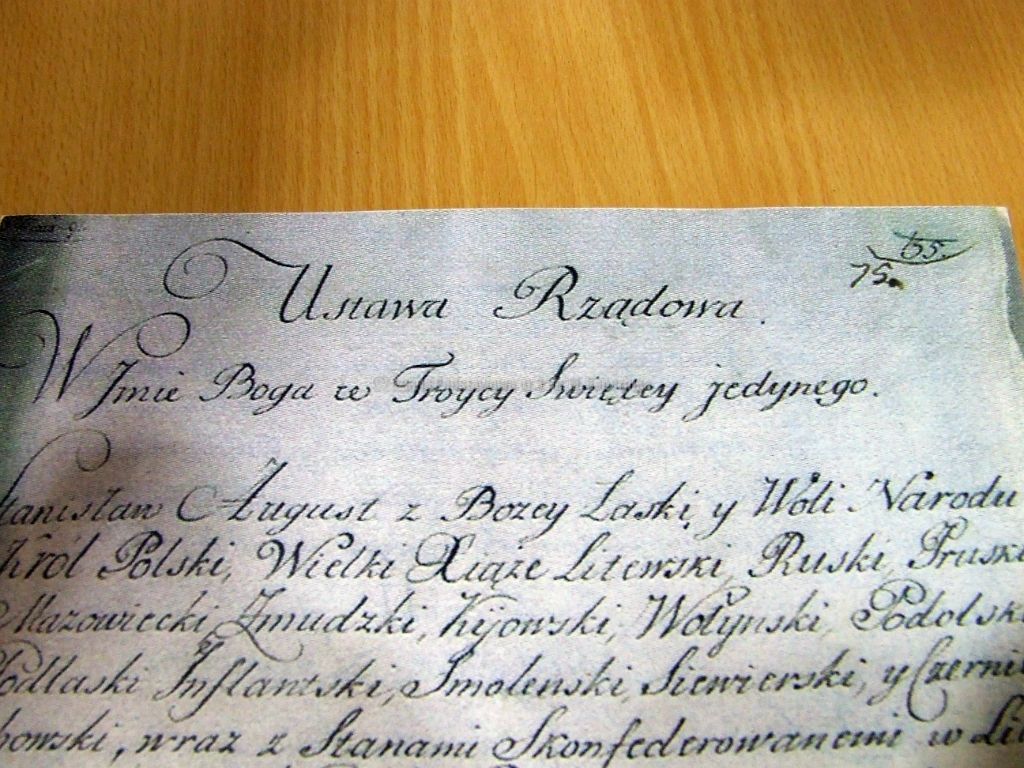 65.
75.
Ustawa Rządowa.
W Jmie Boga w Troycy Swiętey jedynego.
Stanisław August z Bozey Łaski, y Woli Narodu
Król Polski, Wielki Xiąże Litewski, Ruski, Pruski
Mazowiecki, Zmudzki, Kijowski, Wołynski, Podolski
Podlaski Inflantski, Smolenski, Siewierski, y Czernie
howski, wraz z Stanami Skonfederowanemi w